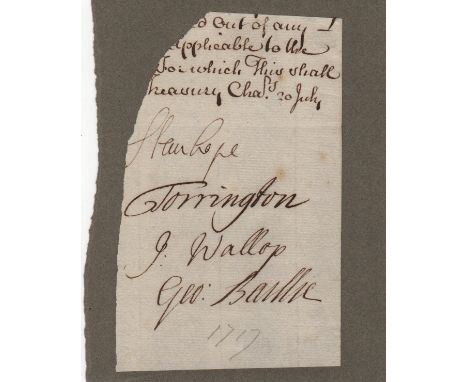 d Out of any
Applicable to the
For which This shall
Treasury Cha.s 20 July
Stanhope
Torrington
J. Wallop
Geo: Baillie
1717